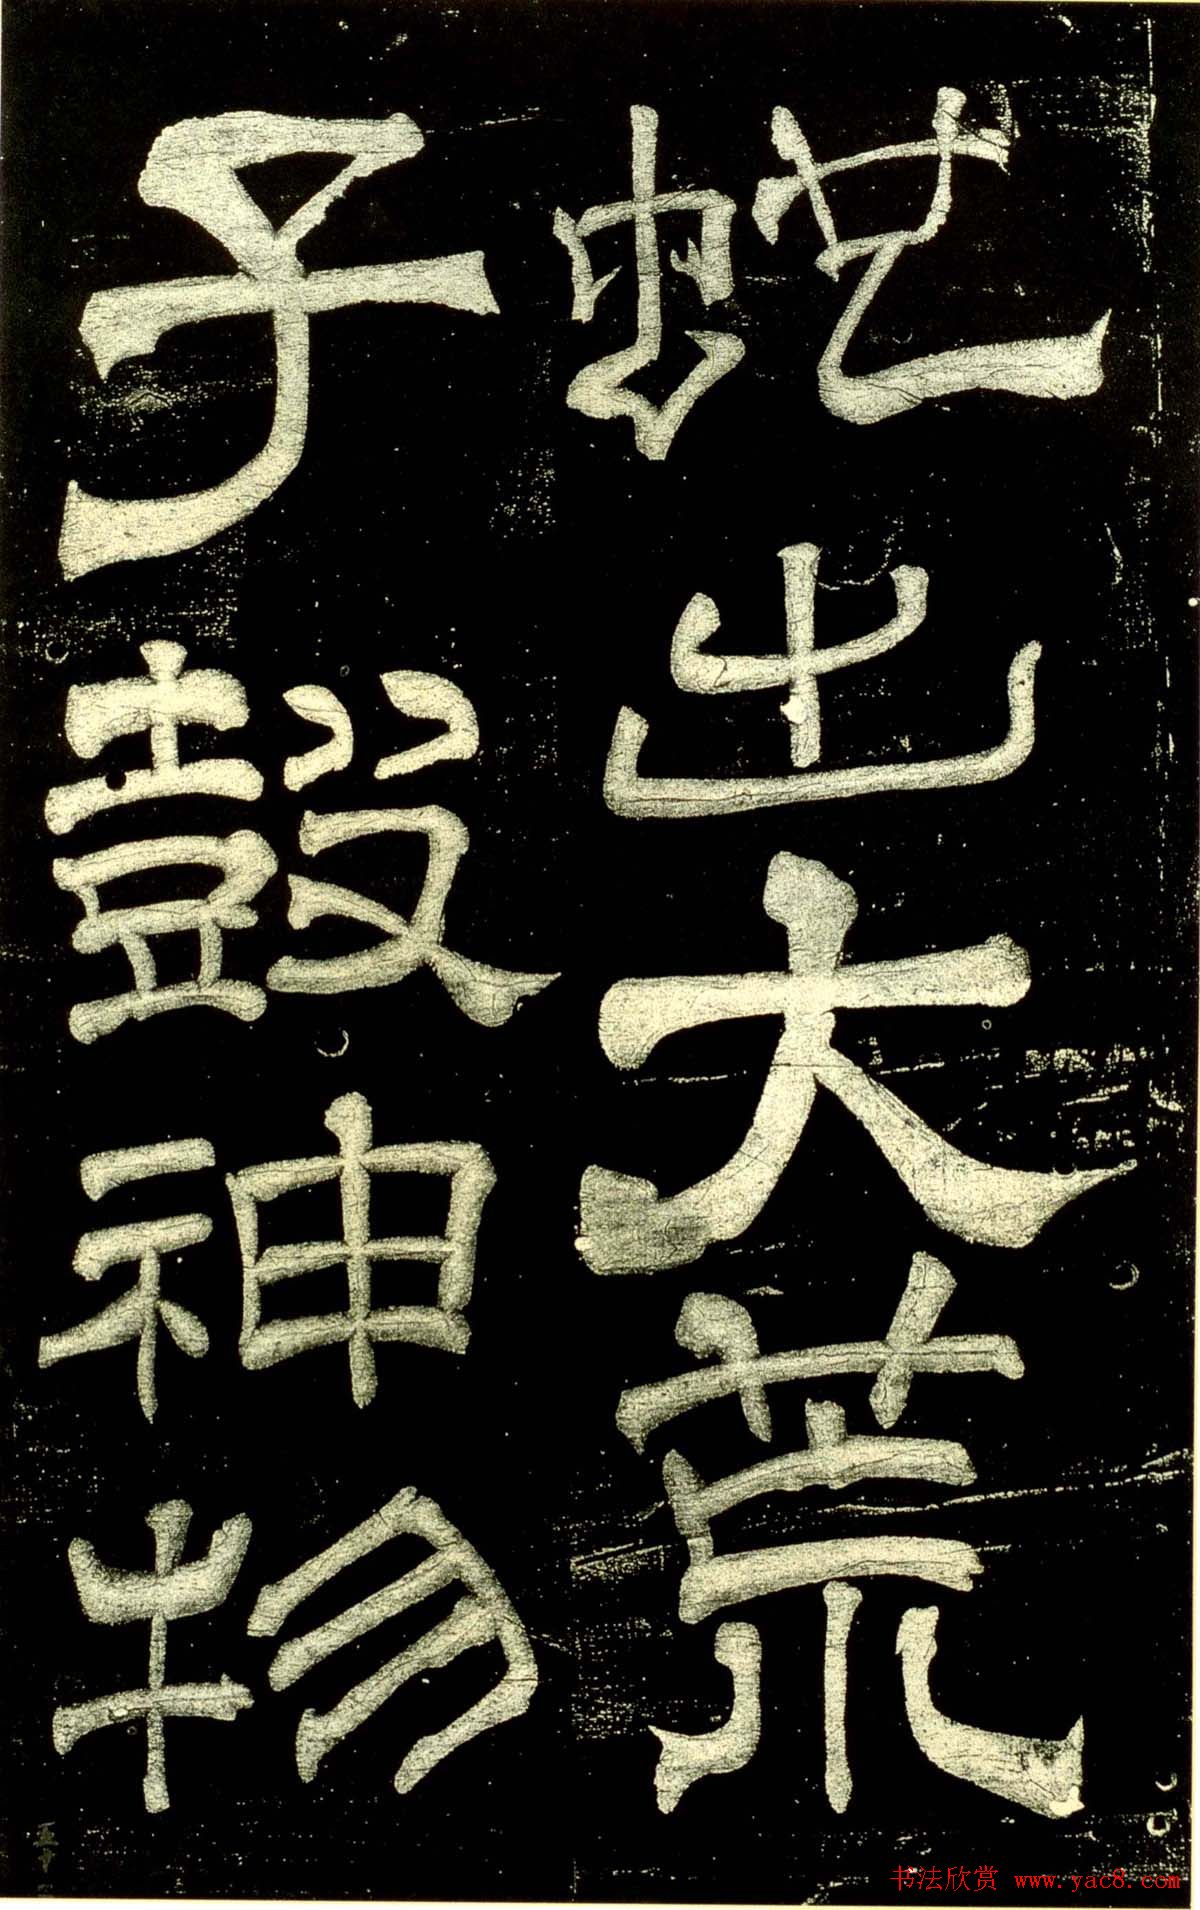 虵出大荒
子鼓神物
书法欣赏 www.yac8.com